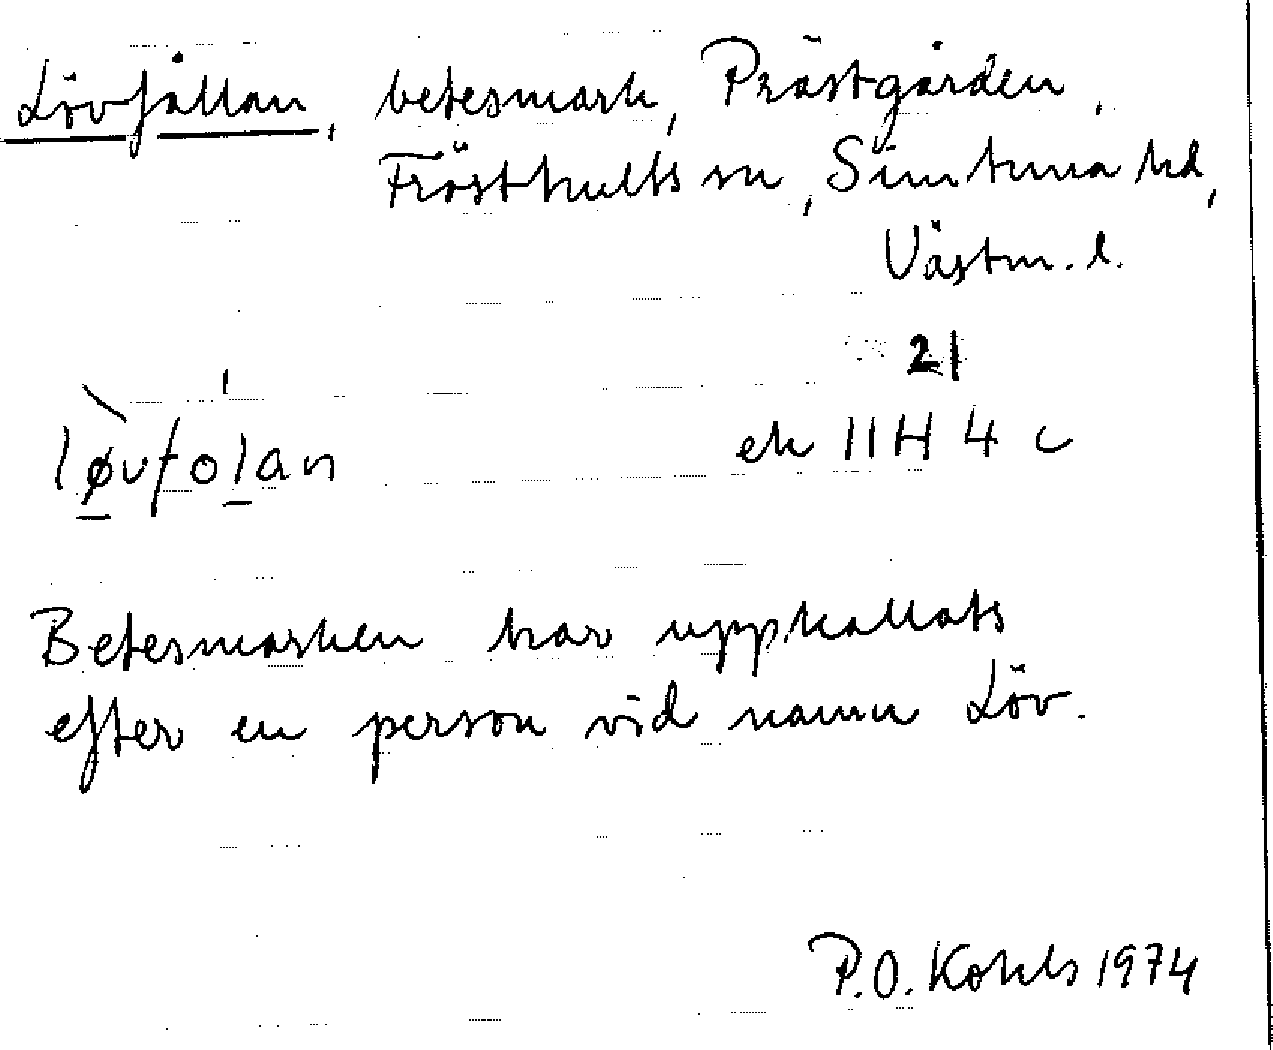 Lövfållan, betesmark, Prästgården,
Frösthults sn, Simtuna hd,
Västm. l.
21
løvfolan ek 11H 4 c
Betesmarken har uppkallats
efter en person vid namn Löv.
P.O. Kohls 1974